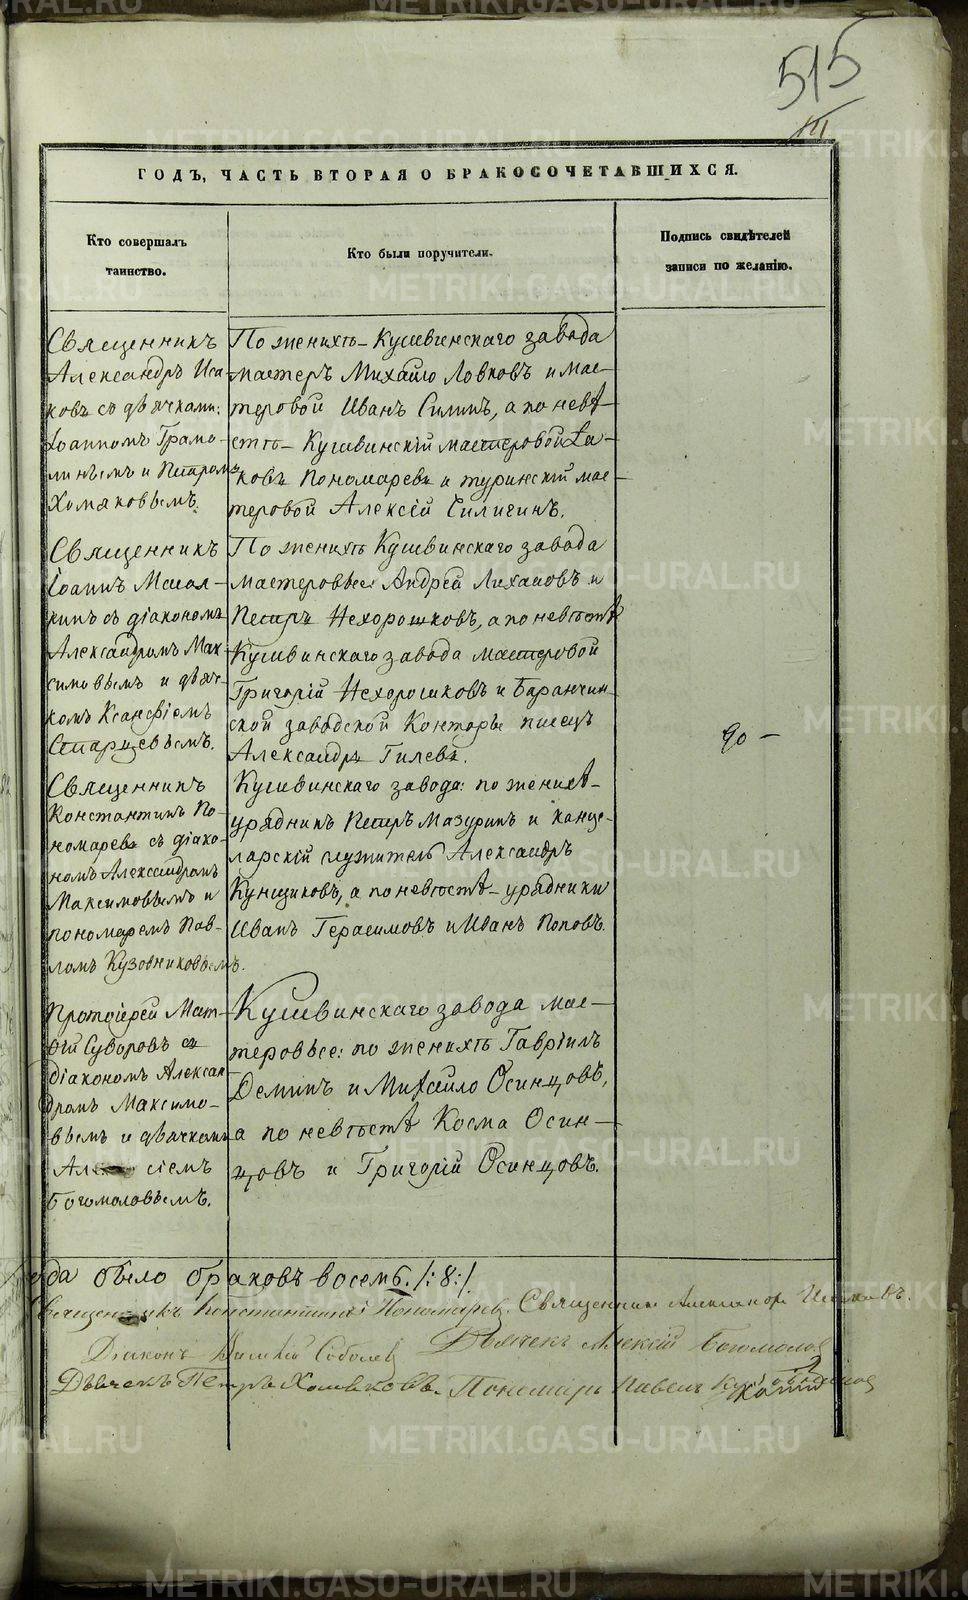 515
ГОДЪ, ЧАСТЬ ВТОРАЯ О БРАКОСОЧЕТАВШИХСЯ.
Кто совершалъ
таинство.
Кто были поручители.
Подпись свидѣтелей
записи по желанію.
Священникъ
Александръ Иса-
ковъ съ дьячками:
Іоанномъ Грамо-
линымъ и Петромъ
Хомяковымъ.
По женихѣ - Кушвинскаго завода
мастеръ Михайло Ловковъ и мас-
теровой Иванъ Силинъ, а по невѣ-
стѣ - Кушвинскій мастеровой Іа-
ковъ Пономаревъ и туринскій мас-
теровой Алексій Силигинъ.
Священникъ
Іоаннъ
съ діакономъ
Александромъ Мак-
симовымъ и дьяч-
комъ Ксанфіемъ
Старцевымъ.
По женихѣ Кушвинскаго завода
мастеровые Андрей Лихановъ и
Петръ Нехорошковъ, а по невѣстѣ
Кушвинскаго завода мастеровой
Григорій Нехорошковъ и Баранчин-
ской заводской Конторы писецъ
Александръ Гилевъ.
Священникъ
Константинъ По-
номаревъ съ діако-
номъ Александромъ
Максимовымъ и
пономаремъ Пав-
ломъ Кузовниковымъ.
Кушвинскаго завода: по женихѣ -
урядникъ Петръ Мазуринъ и канце-
лярскій служитель Александръ
Кунщиковъ, а по невѣстѣ - урядники
Иванъ Герасимовъ и Иванъ Поповъ.
Протоіерей Мат-
ѳій Суворовъ съ
діакономъ Алексан-
дромъ Максимо-
вымъ и дьячкомъ
Алексіемъ
Богомоловымъ.
Кушвинскаго завода мас-
теровые: по женихѣ Гавріилъ
Деминъ и Михайло Осинцовъ,
а по невѣстѣ Косма Осин-
цовъ и Григорій Осинцовъ.
года было браковъ восемь. /:8:/
Священникъ Константинъ Пономаревъ. Священникъ Александръ Исаковъ.
Діаконъ Василій Соболевъ Дьячекъ Алексій Богомоловъ
Дьячекъ Петръ Хомяковъ. Пономарь Павелъ Кузовниковъ
METRIKI.GASO-URAL.RU